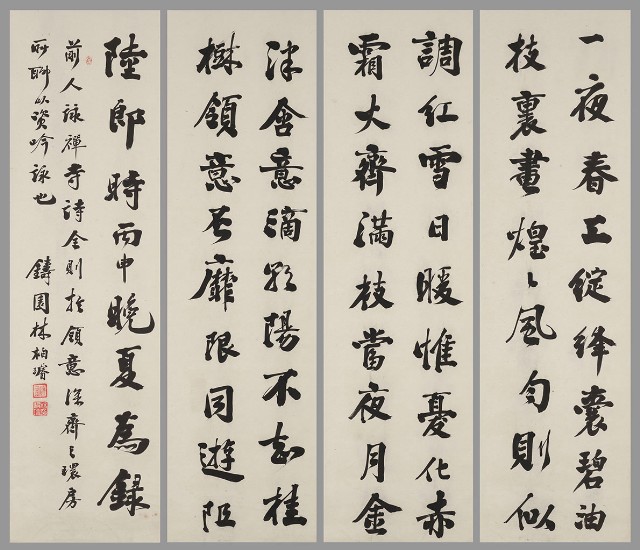 一夜春工綻絳囊碧油
枝裏晝煌煌風勻則似
調紅雪日暖惟憂化赤
霜大齊滿枝當夜月金
津含意滴朝陽不知桂
樹領意無靡限同遊阻
陸郎時丙申晚夏為錄
前人詠禪寺詩全則於領意深齊之環房
所聊以資吟詠也
鑄園林柏壽